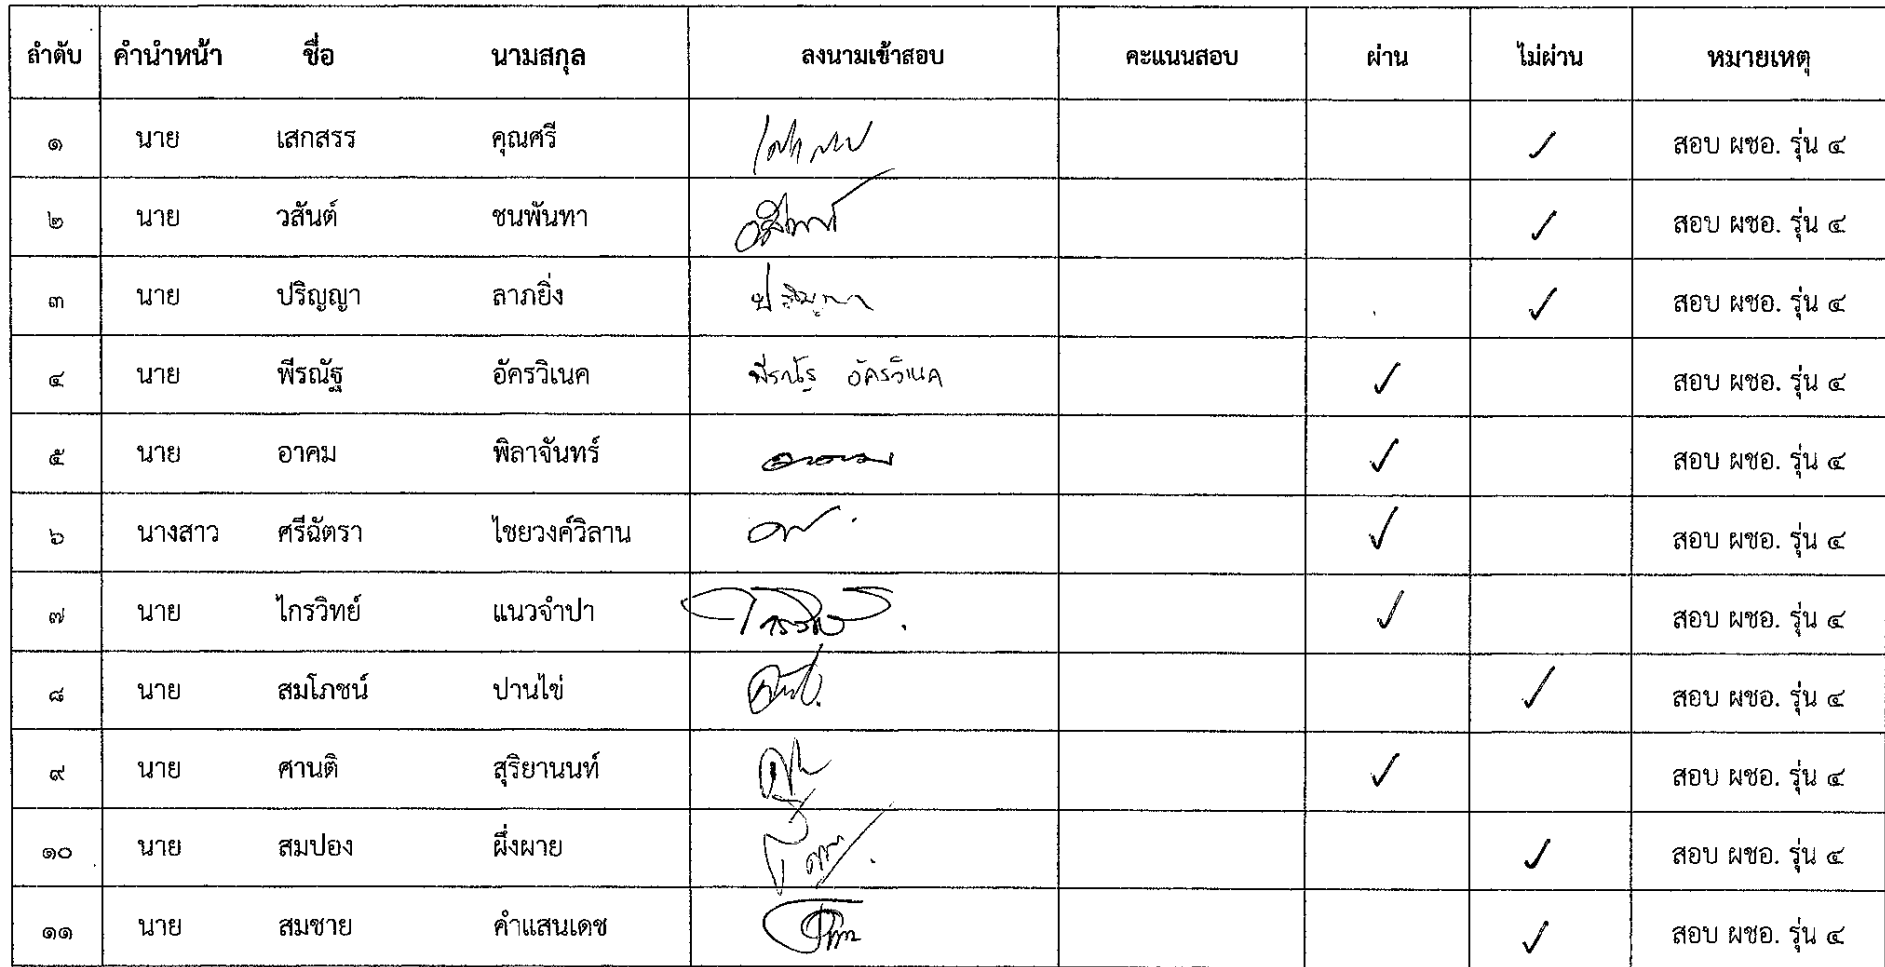 ลำดับ คำนำหน้า ชื่อ นามสกุล ลงนามเข้าสอบ คะแนนสอบ ผ่าน ไม่ผ่าน หมายเหตุ
๑ นาย เสกสรร คุณศรี ✓ สอบ ผชอ. รุ่น ๔
๒ นาย วสันต์ ชนพันทา ✓ สอบ ผชอ. รุ่น ๔
๓ นาย ปริญญา ลาภยิ่ง ปริญญา ✓ สอบ ผชอ. รุ่น ๔
๔ นาย พีรณัฐ อัครวิเนค พีรณัฐ อัครวิเนค ✓ สอบ ผชอ. รุ่น ๔
๕ นาย อาคม พิลาจันทร์ อาคม ✓ สอบ ผชอ. รุ่น ๔
๖ นางสาว ศรีฉัตรา ไชยวงค์วิลาน ✓ สอบ ผชอ. รุ่น ๔
๗ นาย ไกรวิทย์ แนวจำปา ✓ สอบ ผชอ. รุ่น ๔
๘ นาย สมโภชน์ ปานไข่ ✓ สอบ ผชอ. รุ่น ๔
๙ นาย ศานติ สุริยานนท์ ✓ สอบ ผชอ. รุ่น ๔
๑๐ นาย สมปอง ผึ่งผาย ✓ สอบ ผชอ. รุ่น ๔
๑๑ นาย สมชาย คำแสนเดช ✓ สอบ ผชอ. รุ่น ๔